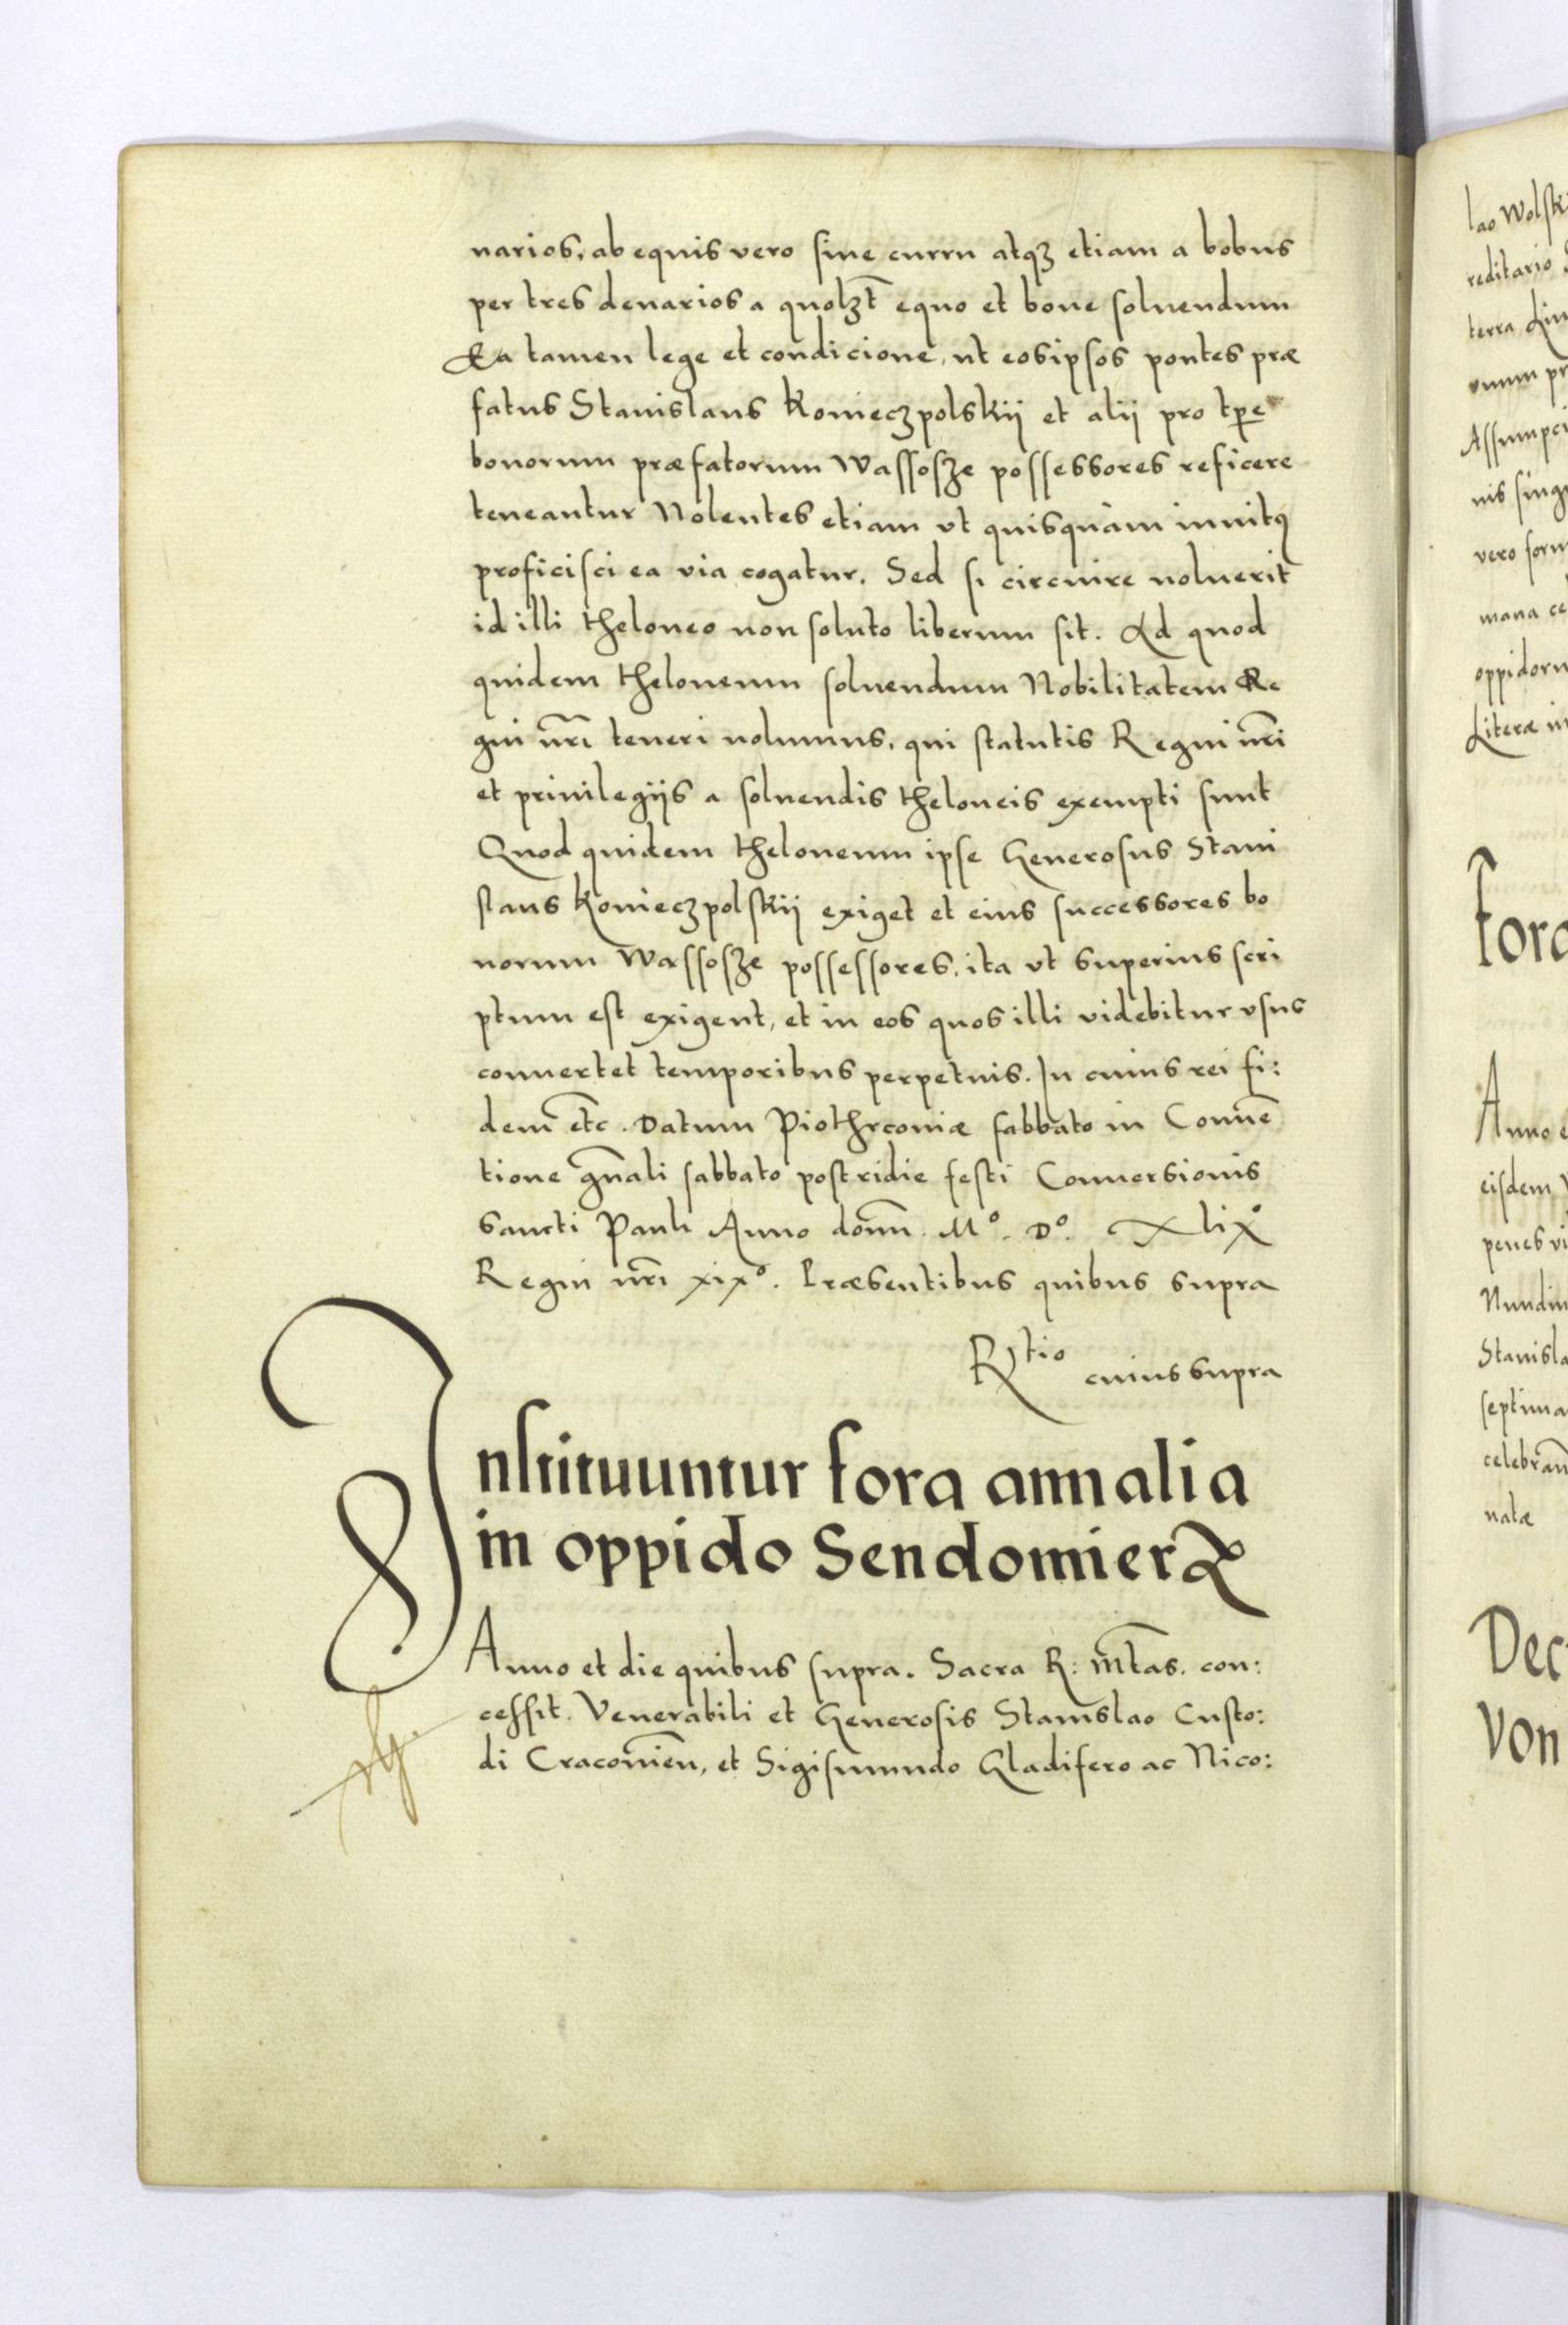 narios, ab equis vero sine curru atqꝫ etiam a bobus
per tres denarios a quolꝫt equo et boue soluendum
Ea tamen lege et condicione, ut eos ipsos pontes præ
fatus Stanislaus Konieczpolskij et alij pro tꝑe
bonorum præfatorum Wassosze possessores reficere
teneantur Nolentes etiam vt quisquàm inuitꝰ
proficisci ea via cogatur. Sed si circuire uoluerit
id illi theloneo non soluto liberum sit. Ad quod
quidem theloneum soluendum Nobilitatem Re
gni nr̃i teneri nolumus, qui statutis Regni nr̃i
et priuilegijs a soluendis theloneis exempti sunt
Quod quidem theloneum ipse Generosus Stani
slaus Konieczpolskij exiget et eius successores bo
norum Wassosze possessores, ita vt superius scri
ptum est exigent, et in eos quos illi videbitur vsus
conuertet temporibus perpetuis. In cuius rei fi:
dem et̃c. Datum Piothrconiæ sabbato in Conue͂
tione gn͂ali sabbato postridie festi Conuersionis
Sancti Pauli Anno domn͂. Mº. Dº. Xlixº
Regni nr̃i xixº. Præsentibus quibus supra
Rtio cuius supra
Instituuntur fora annalia
in oppido Sendomierꝫ
Anno et die quibus supra. Sacra R: mt͂as. con:
cessit. Venerabili et Generosis Stanislao Custo:
di Cracouien͂, et Sigismundo Gladifero ac Nico:
lao Wolsk
reditario
terra
Assumpci
nis
vero
mana ce
oppidoru
Literæ in
fora
Anno e
eisdem
penes vi
Nundin
Stanisla
septima
celebran͂
natæ
Dec
Von